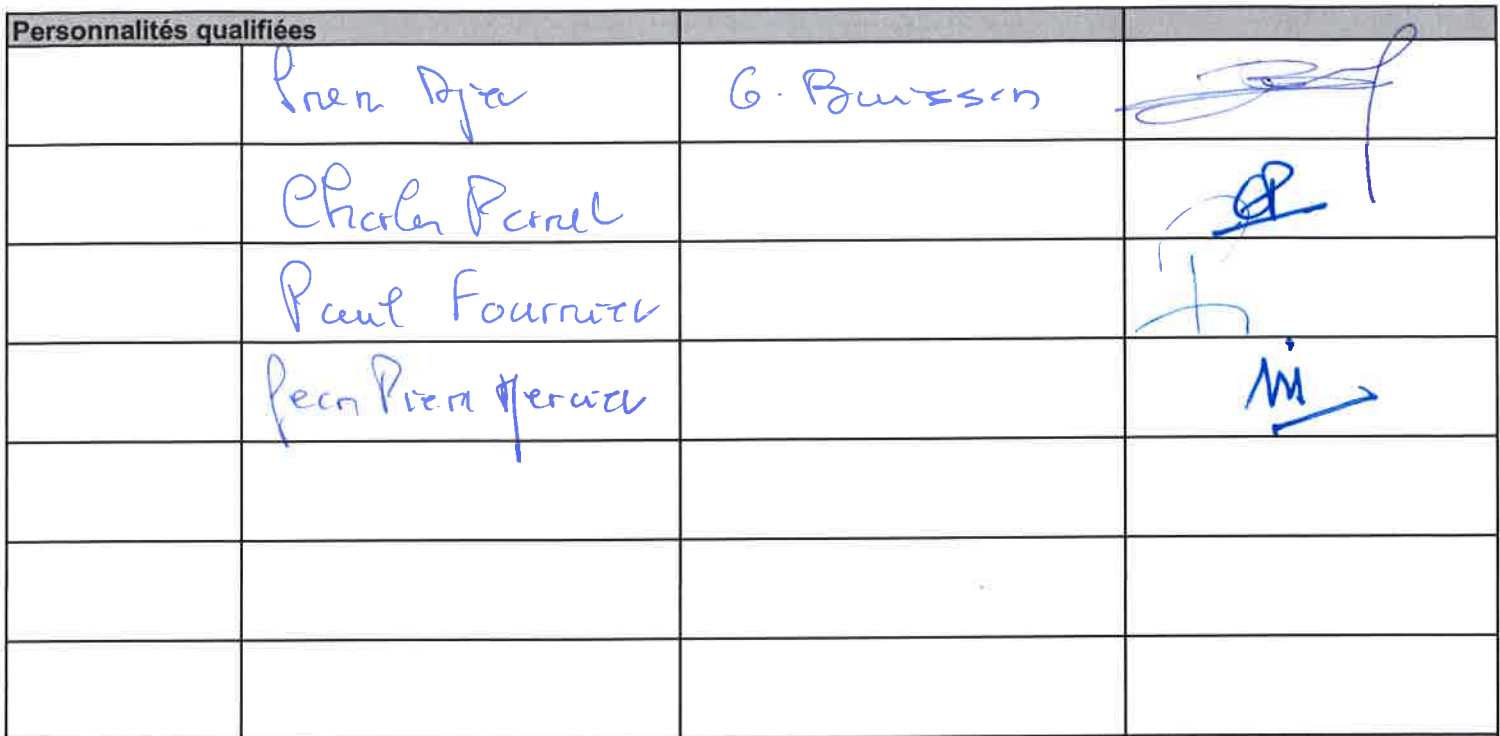 Personnalités qualifiées
G. Buisson
Charles Parnel
Paul Fournier
Jean Pierre Mercier